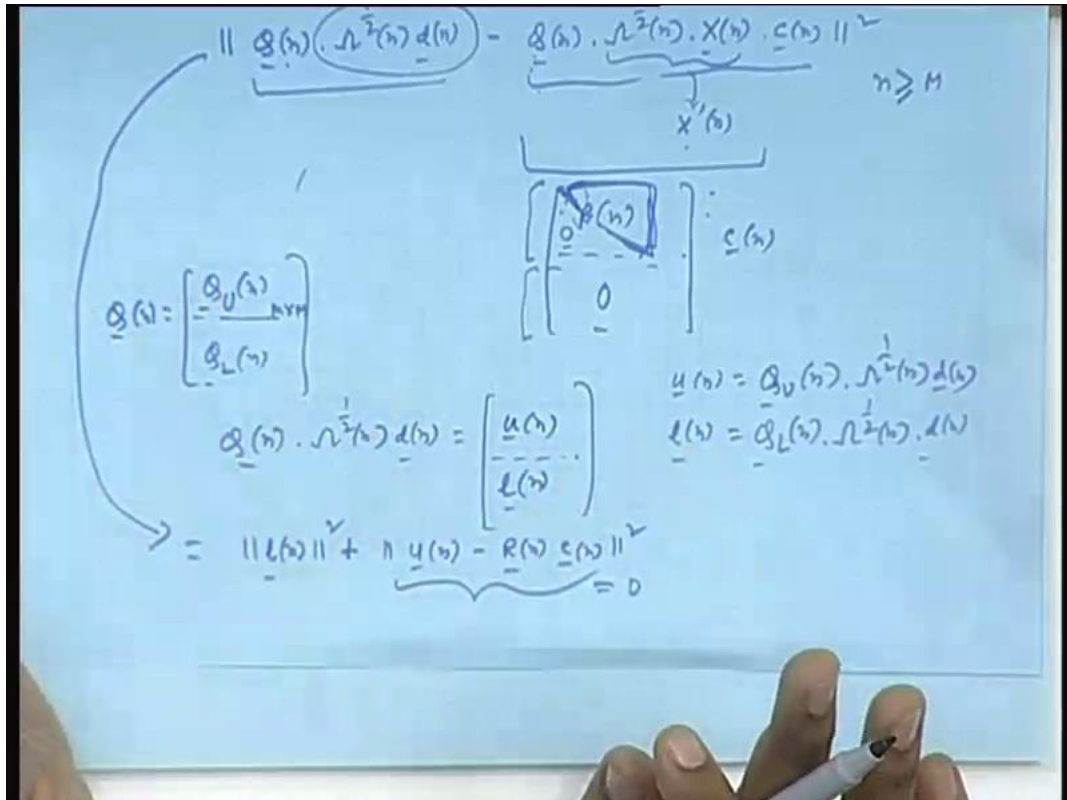 || Q(n) . Λ^{1/2}(n) d(n) - Q(n) . Λ^{1/2}(n) . X(n) . c(n) ||²
n ≥ M
X'(n)
R(n)
0
0
c(n)
Q(n) = [ Q_U(n) M×M
Q_L(n) ]
u(n) = Q_U(n) . Λ^{1/2}(n) d(n)
Q(n) . Λ^{1/2}(n) d(n) = [ u(n)
l(n) ]
l(n) = Q_L(n) . Λ^{1/2}(n) . d(n)
= || l(n) ||² + || u(n) - R(n) c(n) ||²
= 0